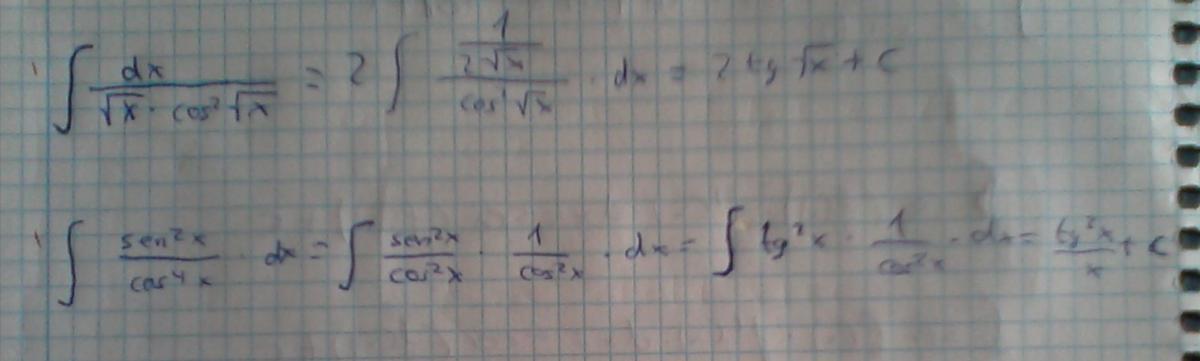 ∫ dx / (√x · cos² √x) = 2 ∫ (1 / (2√x)) / (cos² √x) · dx = 2 tg √x + C
∫ sen²x / cos⁴x · dx = ∫ sen²x / cos²x · 1 / cos²x · dx = ∫ tg²x · 1 / cos²x · dx = tg²x / x + C